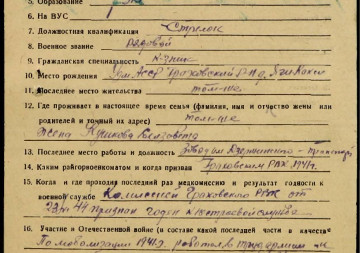 5. Образование
6. На ВУС
7. Должностная квалификация Стрелок
8. Военное звание Рядовой
9. Гражданская специальность
10. Место рождения АССР Граховский р-н д.
11. Последнее место жительства там-же
12. Где проживает в настоящее время семья (фамилия, имя и отчество жены или
родителей и точный их адрес) там-же
Жена Елизавета
13. Последнее место и должность Завод им Дзержинского -
14. Каким райгорвоенкоматом и когда призван Граховским РВК 1941г.
15. Когда и где проходил последний раз медкомиссию и результат годности к
военной службе Комиссией Граховского РВК от
44 признан годен к строевой службе
16. Участие в Отечественной войне (в составе какой последней части и в качестве
По мобилизации 1941г. работал в трудармии